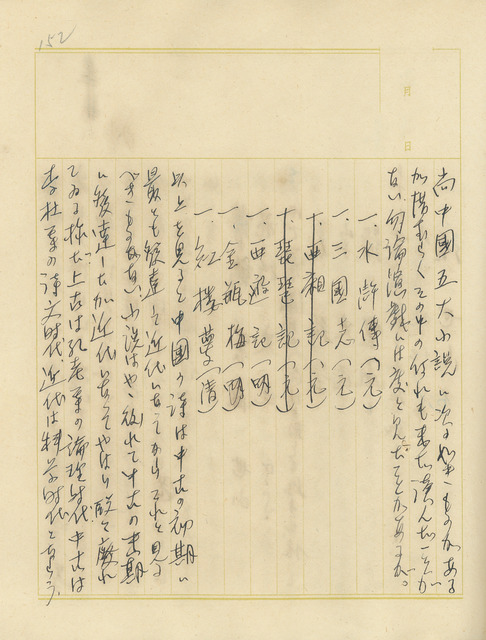 152
月
日
尚中國五大小説に次の如きものがある
が惜むらくその中の何れも未だ讀んだことが
ない、勿論演戯には度々とんだことがあるが。
一、水滸傳（元）
一、三國志（元）
一、西廂記（元）
一、琵琶記（元）
一、西遊記（明）
一、金瓶梅（明）
一、紅樓夢（清）
以上を見ると中國の詩は中古の初期に
最とも發達して近代に於てからこれと見る
べきものがない、小説はやゝ後れて中古の末期
に發達したが近代に於てやはり
てゐる様だ上古は孔老莊の論理時代中古は
李杜等の詩文時代近代は科学時代と